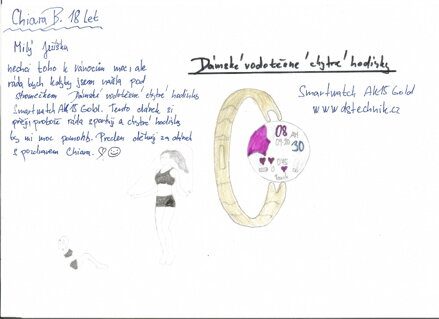 Chiara B. 18 let
Milý Ježíšku
nechci toho k vánocům moc, ale
ráda bych kdyby jsem našla pod
stromečkem Dámské vodotěsné chytré hodinky
Smartwatch AK15 Gold. Tento dárek si
přeji protože ráda sportuji a chytré hodinky
by mi moc pomohli. Předem děkuji za dárek
s pozdravem Chiara.
Dámské vodotěsné chytré hodinky
Smartwatch AK15 Gold
www.dstechnik.cz
08 AM
09:30 30